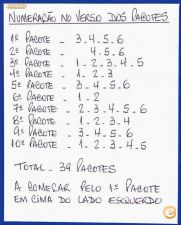 NUMERAÇÃO NO VERSO DOS PACOTES
1º PACOTE - 3.4.5.6
2º PACOTE - 4.5.6
3º PACOTE - 1.2.3.4.5
4º PACOTE - 1.2.3
5º PACOTE - 3.4.5.6
6º PACOTE - 1.2
7º PACOTE - 2.3.4.5.6
8º PACOTE - 2.3.4.5.6
9º PACOTE - 3.4.5.6
10º PACOTE - 1.2.3.4.5
TOTAL - 39 PACOTES
A COMEÇAR PELO 1º PACOTE
EM CIMA DO LADO ESQUERDO